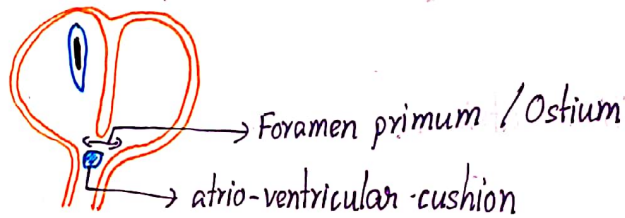 Foramen primum / Ostium
atrio-ventricular-cushion